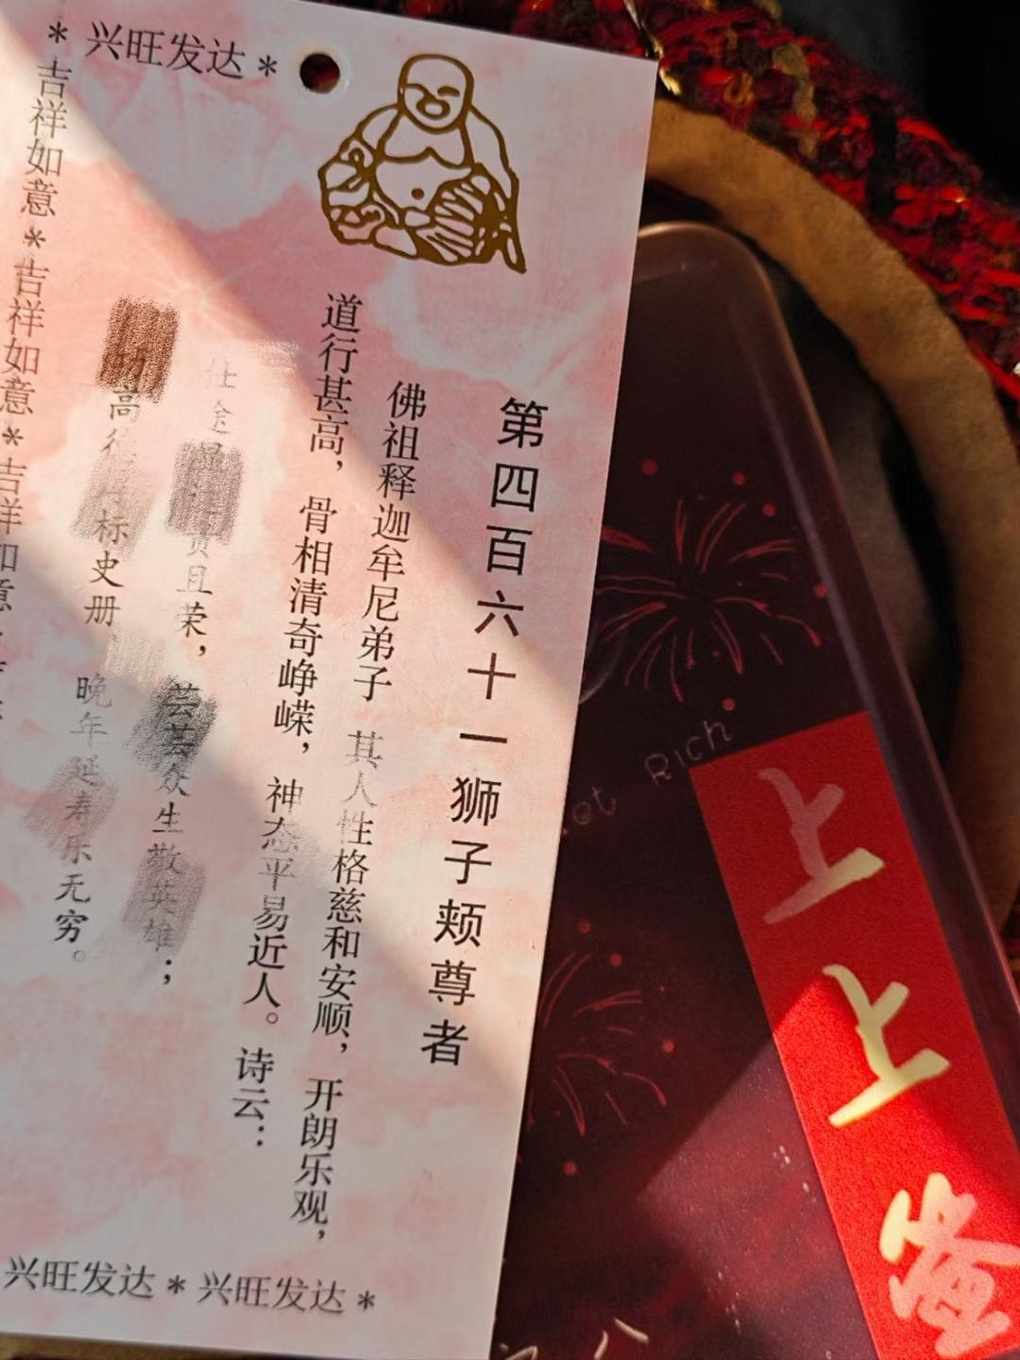 * 兴旺发达 *
第四百六十一狮子颊尊者
佛祖释迦牟尼弟子 其人性格慈和安顺，开朗乐观，
道行甚高，骨相清奇峥嵘，神态平易近人。诗云：
仕 贵且荣，芸芸众生敬英雄；
高德 标史册 晚年延寿乐无穷。
吉祥如意 * 吉祥如意 * 吉祥如意
兴旺发达 * 兴旺发达 *
Get Rich
上上签